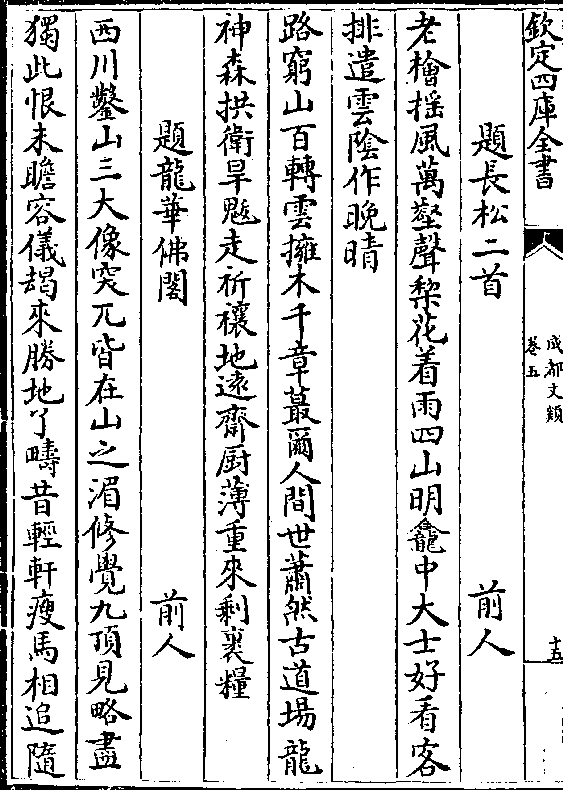 欽定四庫全書
成都文類
卷五
十五
題長松二首 前人
老檜揺風萬壑聲梨花着雨四山明龕中大士好看客
排遣雲隂作晚晴
路窮山百轉雲擁木千章蕞爾人間世蕭然古道場龍
神森拱衛旱魃走祈禳地逺齋厨薄重來剰裹糧
題龍華佛閣 前人
西川鑿山三大像突兀皆在山之湄修覺九頂見略盡
獨此恨未瞻容儀朅來勝地了疇昔輕軒瘦馬相追隨